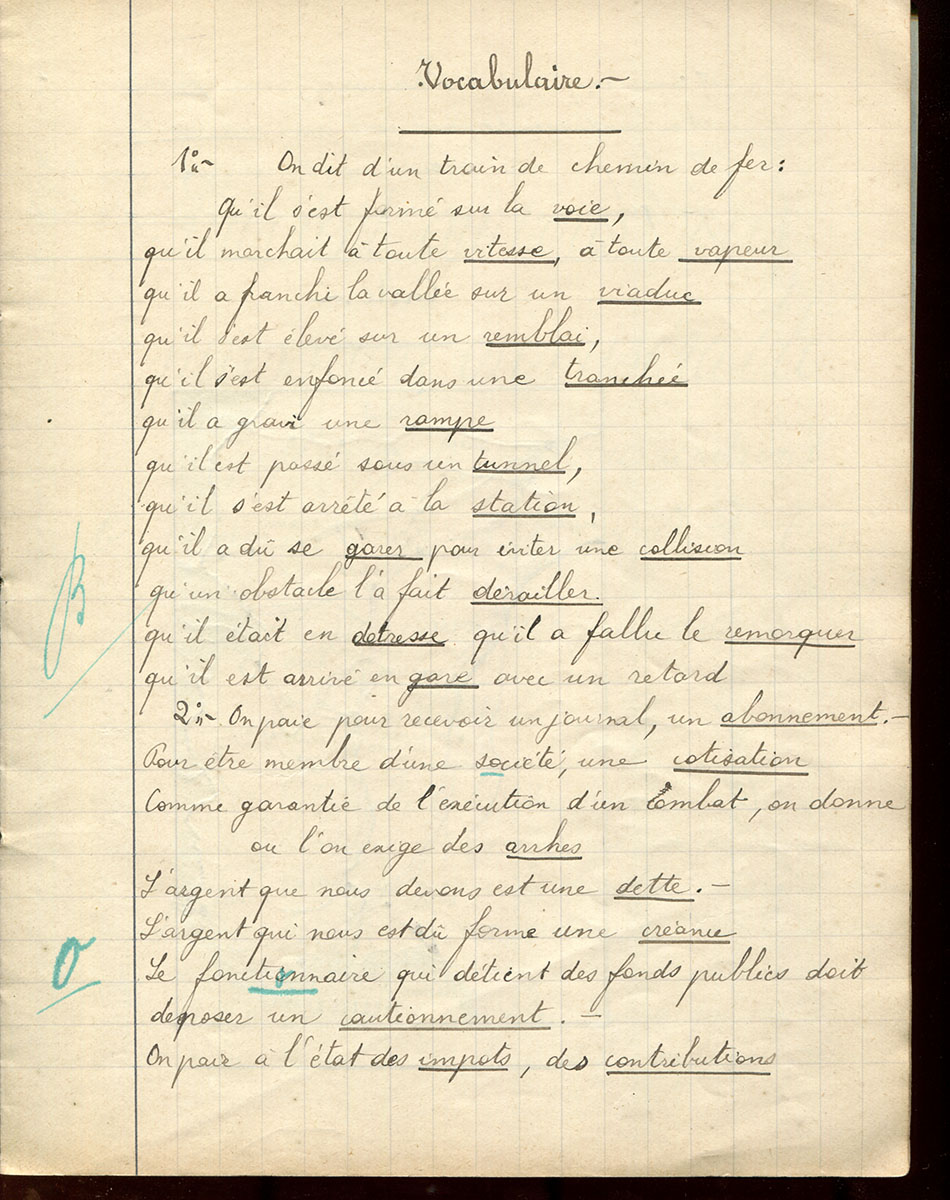 Vocabulaire.-
1º- On dit d'un train de chemin de fer:
Qu'il s'est formé sur la voie,
qu'il marchait à toute vitesse, à toute vapeur
qu'il a franchi la vallée sur un viaduc
qu'il s'est élevé sur un remblai,
qu'il s'est enfoncé dans une tranchée
qu'il a gravi une rampe
qu'il est passé sous un tunnel,
qu'il s'est arrêté à la station,
qu'il a dû se garer pour éviter une collision
qu'un obstacle l'a fait dérailler.
qu'il était en détresse qu'il a fallu le remorquer
qu'il est arrivé en gare avec un retard
2º- On paie pour recevoir un journal, un abonnement.-
Pour être membre d'une société, une cotisation
Comme garantie de l'exécution d'un combat, on donne
ou l'on exige des arrhes
L'argent que nous devons est une dette.-
L'argent qui nous est dû forme une créance
B
O
Le fonctionnaire qui détient des fonds publics doit
déposer un cautionnement.-
On paie à l'état des impots, des contributions